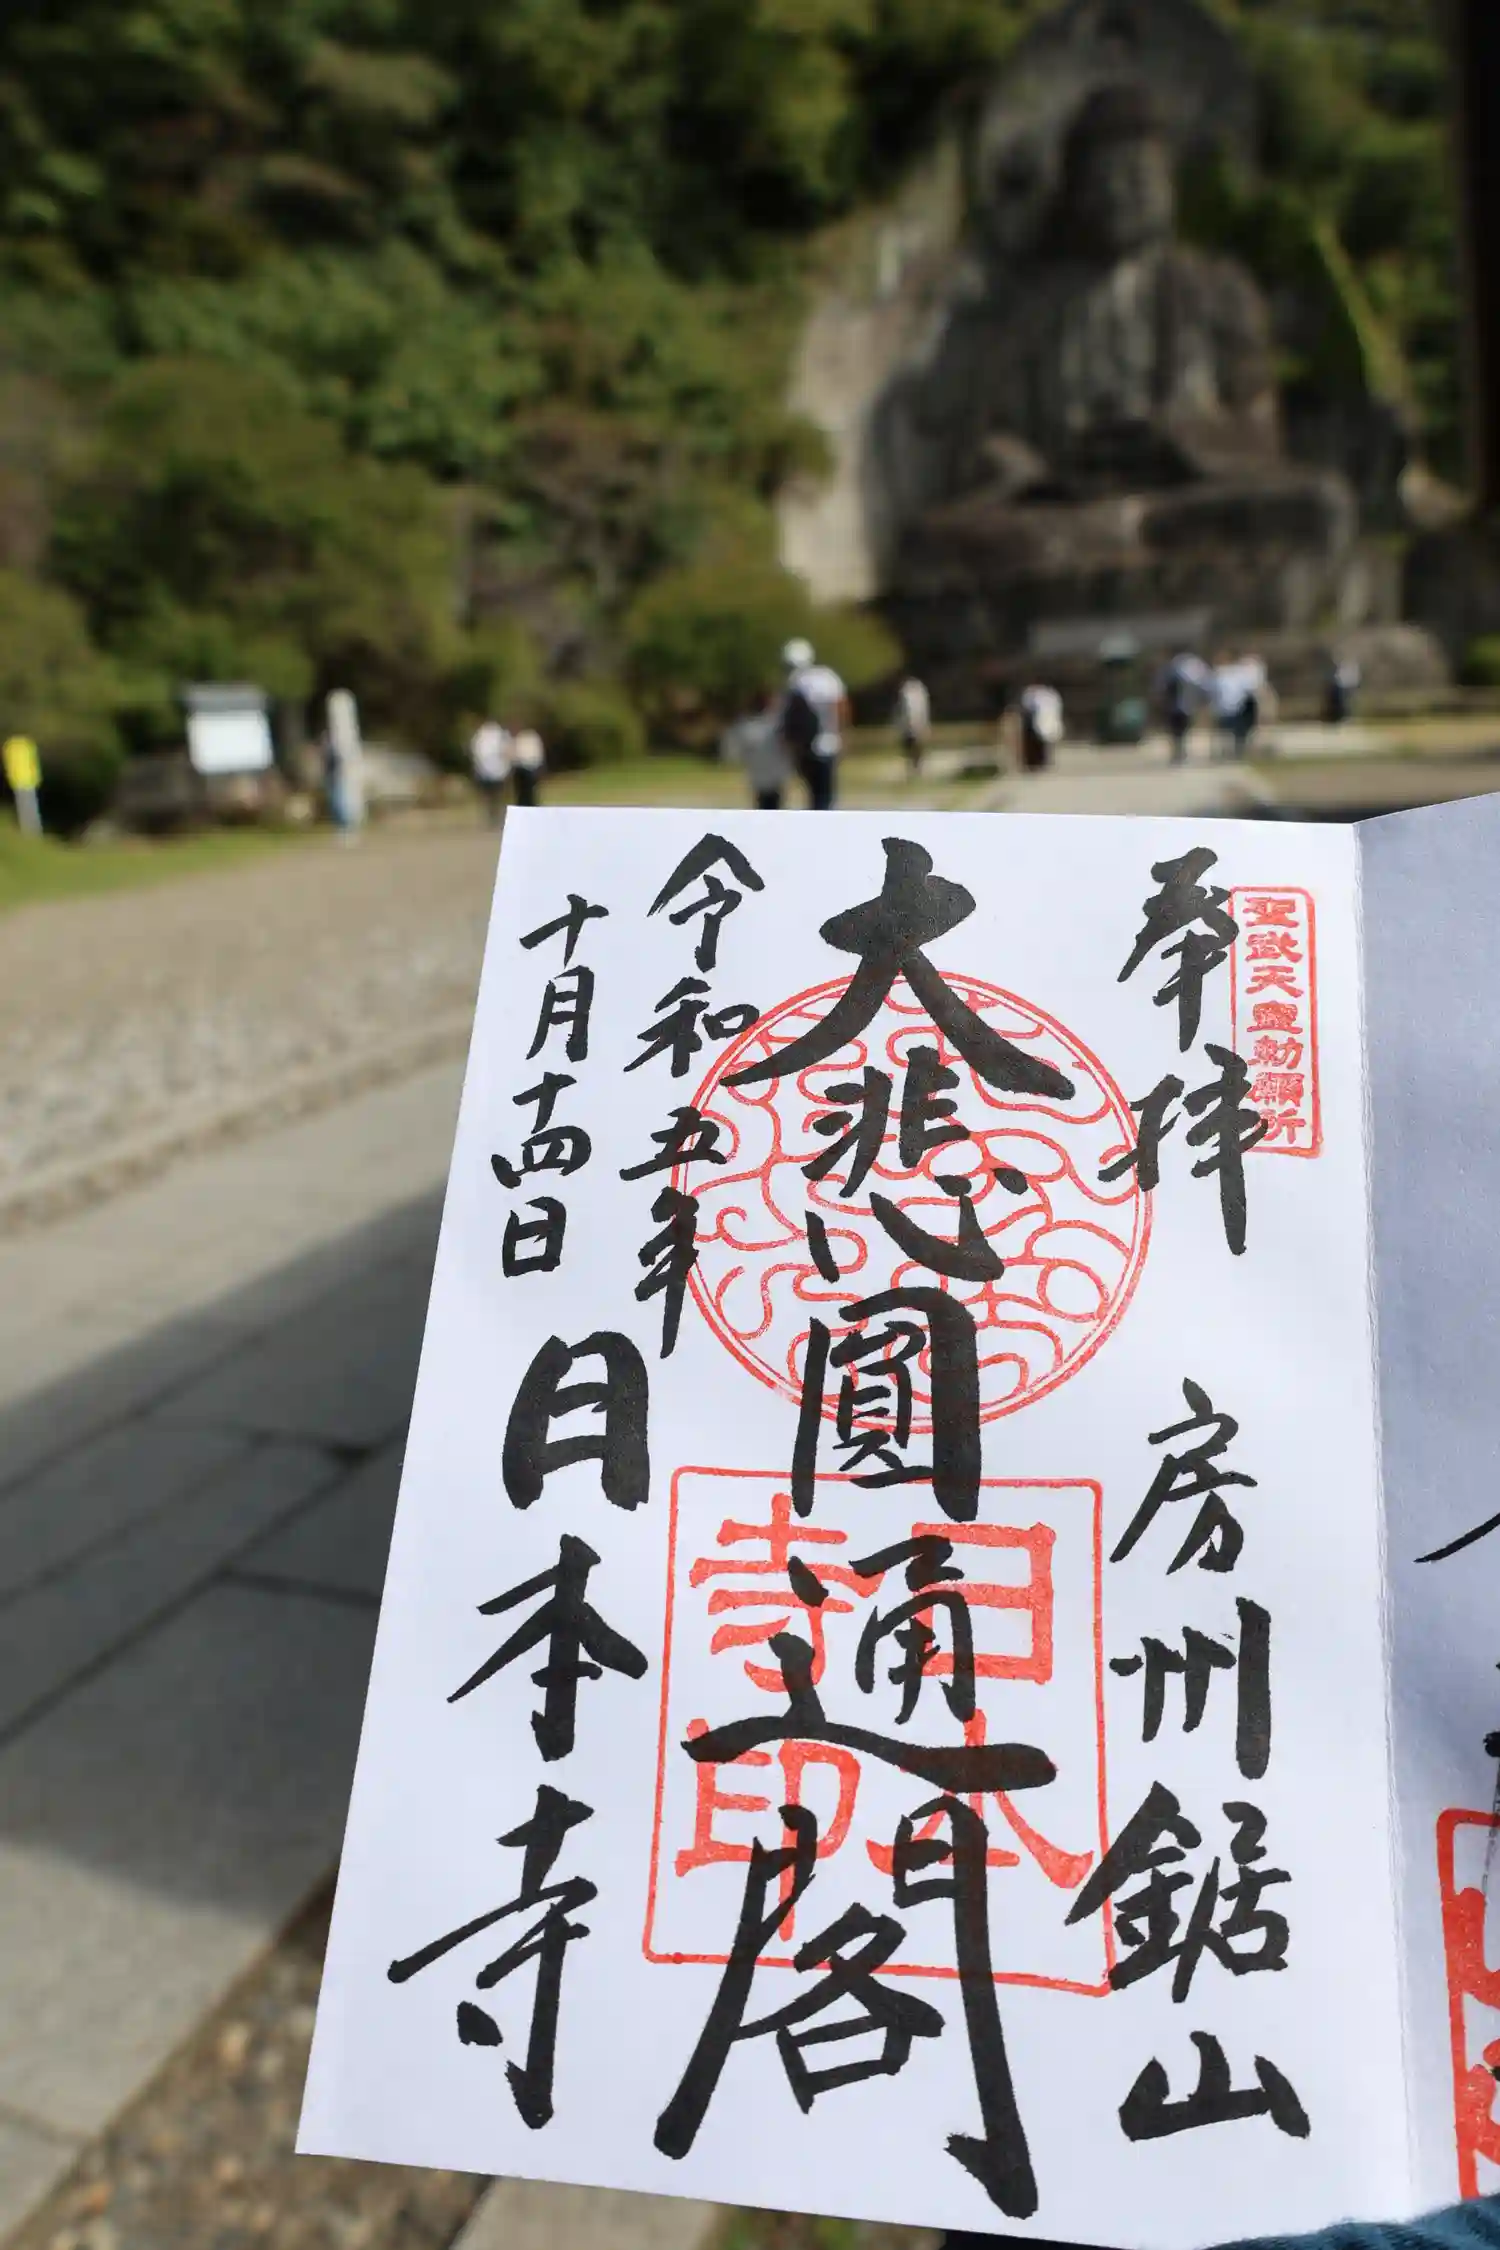 奉拝
房州鋸山
聖武天皇勅願所
大悲圓通閣
日本
寺印
令和五年
十月十四日
日本寺